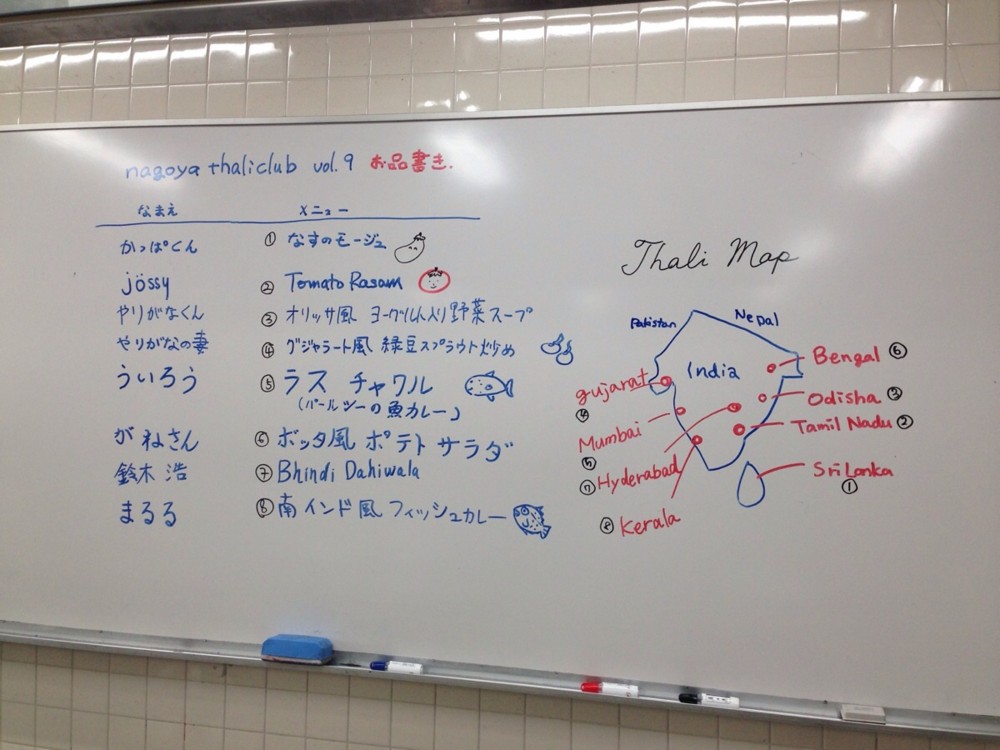 nagoya thaliclub vol.9 お品書き.
なまえ メニュー
かっぱくん ① なすのモージュ
jössy ② Tomato Rasam
やりがなくん ③ オリッサ風 ヨーグルト入り野菜スープ
やりがなの妻 ④ グジャラート風 緑豆スプラウト炒め
ういろう ⑤ ラス チャワル
(パールシーの魚カレー)
がねさん ⑥ ボッタ風 ポテトサラダ
鈴木 浩 ⑦ Bhindi Dahiwala
まるる ⑧ 南インド風 フィッシュカレー
Thali Map
Pakistan
Nepal
India
Bengal ⑥
Odisha ③
Tamil Nadu ②
Sri Lanka
①
gujarat
④
Mumbai
⑤
⑦ Hyderabad
⑧ Kerala